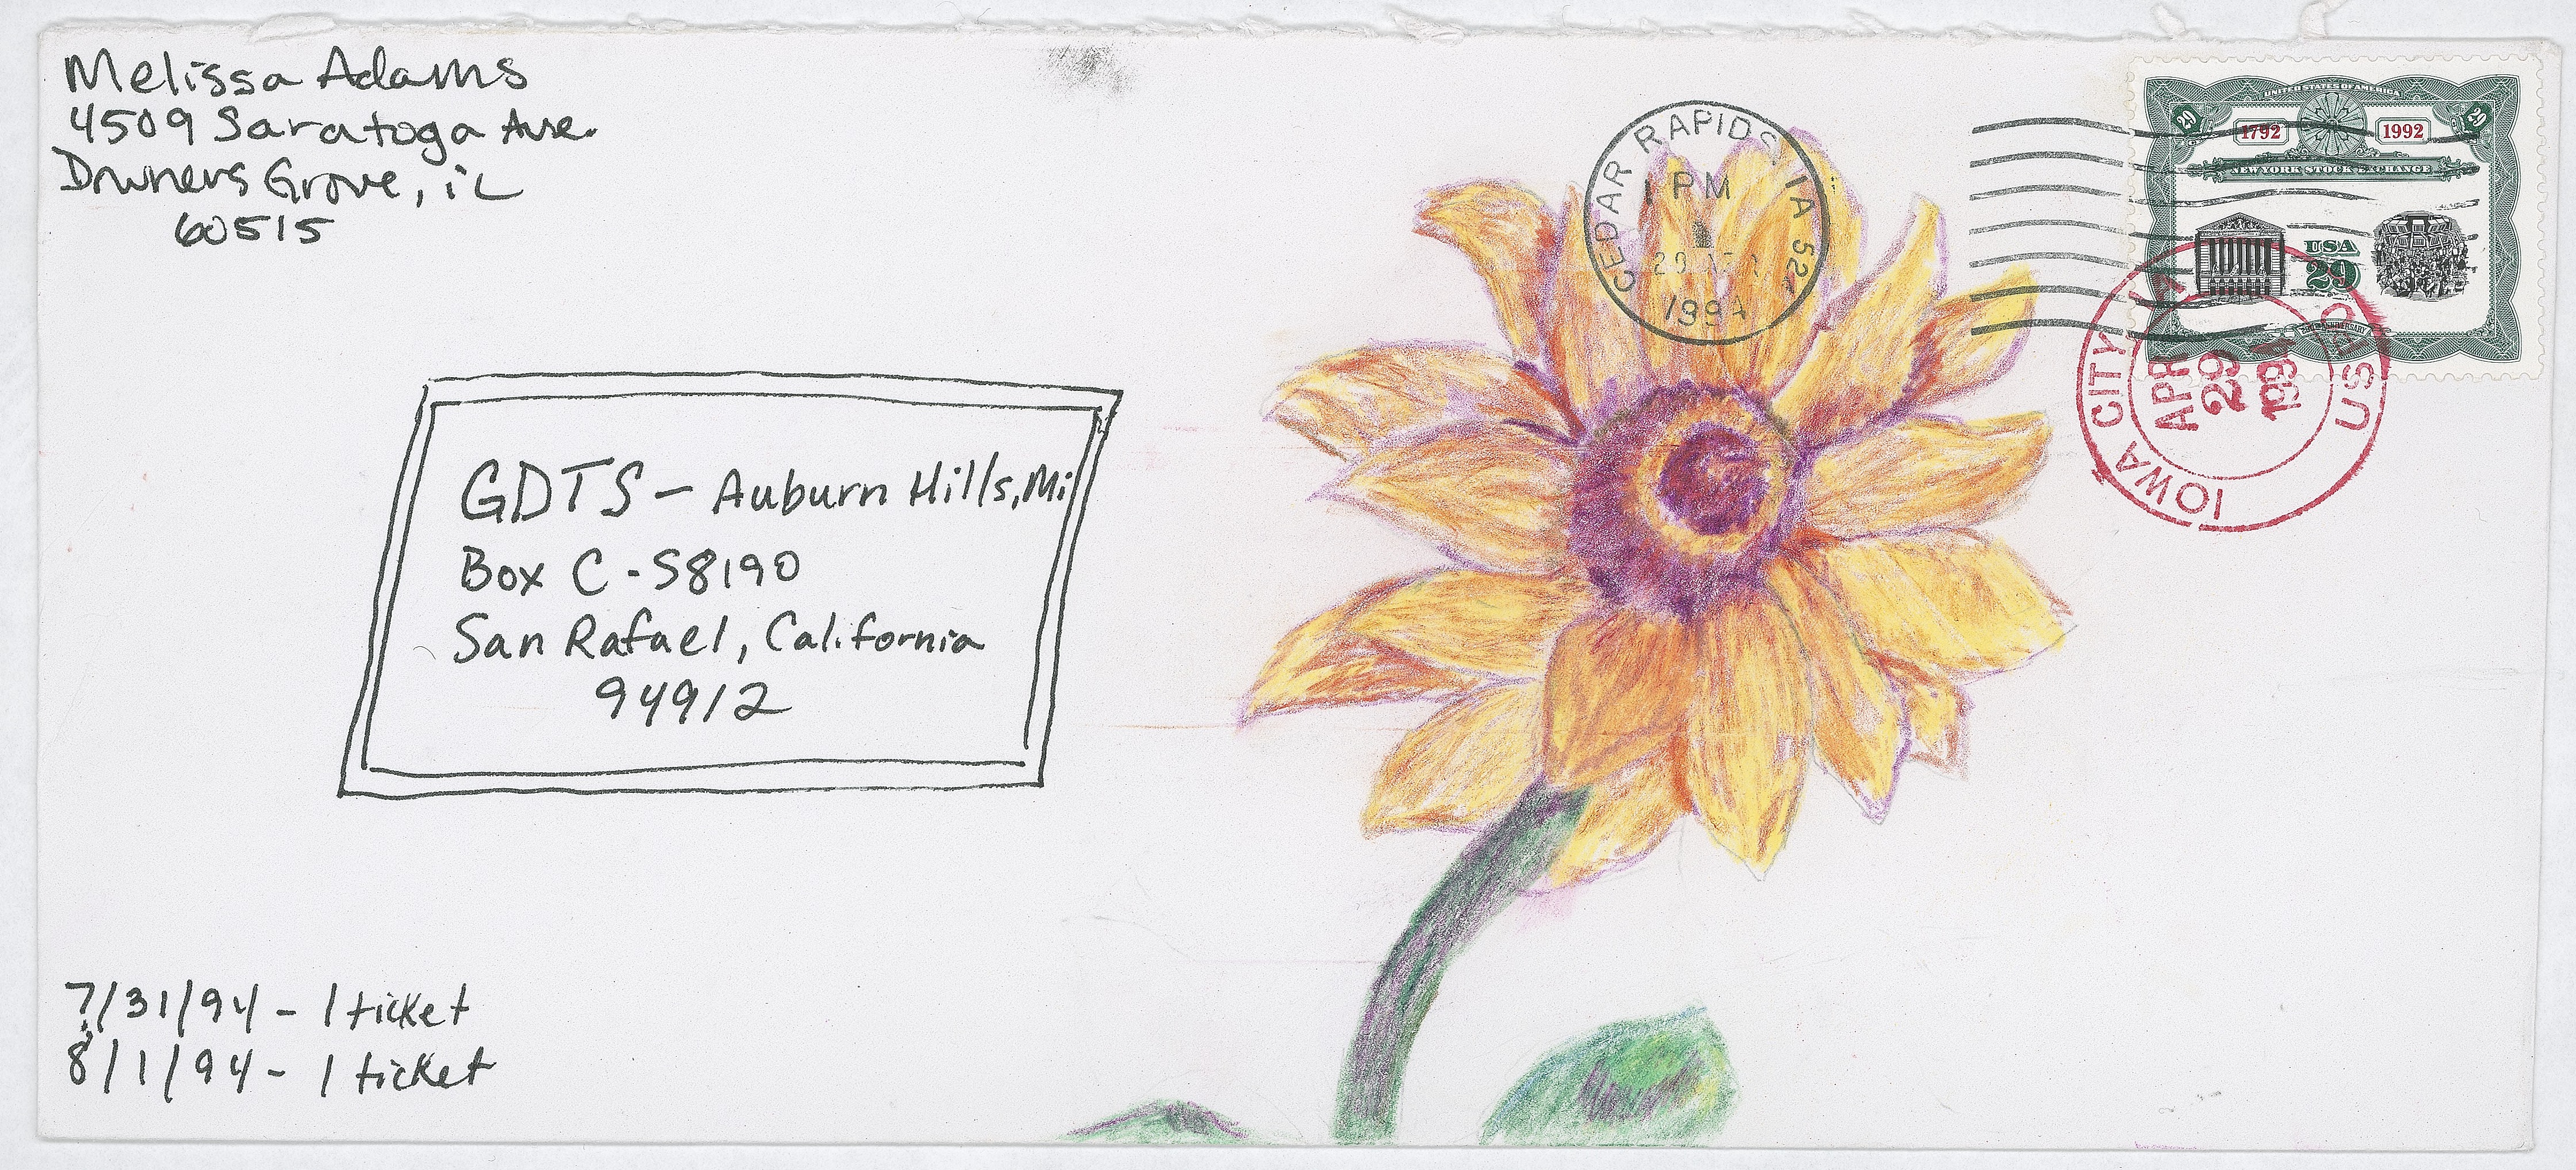 Melissa Adams
4509 Saratoga Ave.
Downers Grove, iL
60515
GDTS - Auburn Hills, Mi
Box C - S8190
San Rafael, California
94912
7/31/94 - 1 ticket
8/1/94 - 1 ticket
CEDAR RAPIDS IA
1 PM
1994
UNITED STATES OF AMERICA
29 29
1792 1992
NEW YORK STOCK EXCHANGE
USA
29
IOWA CITY
APR
29
1994